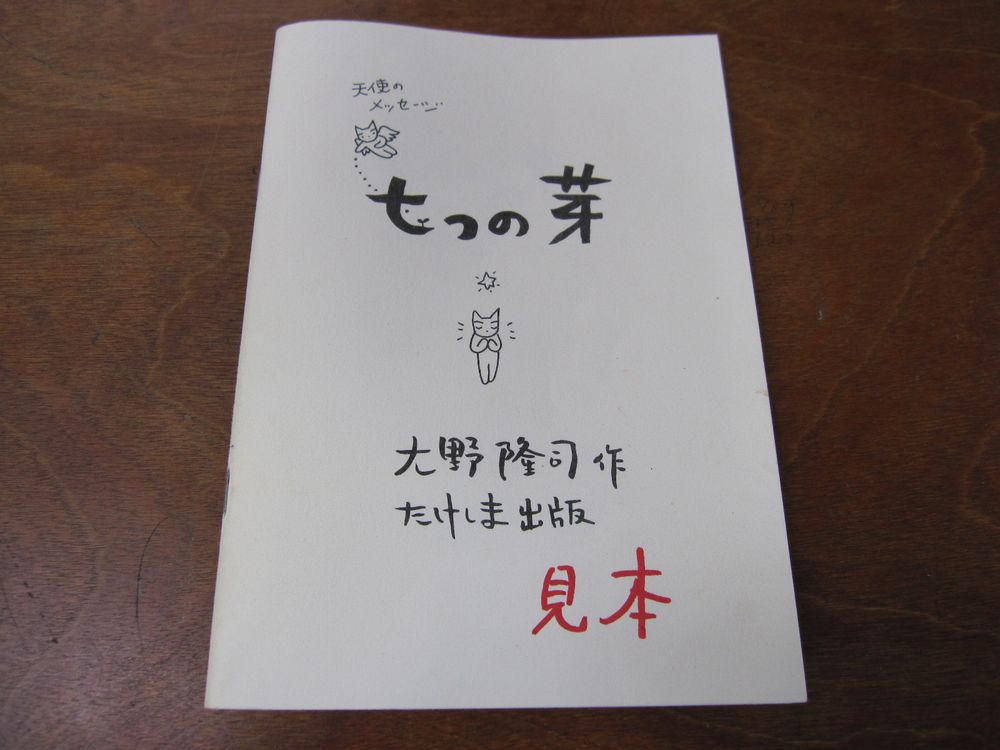 天使の
メッセージ
七つの芽
大野隆司作
たけしま出版
見本